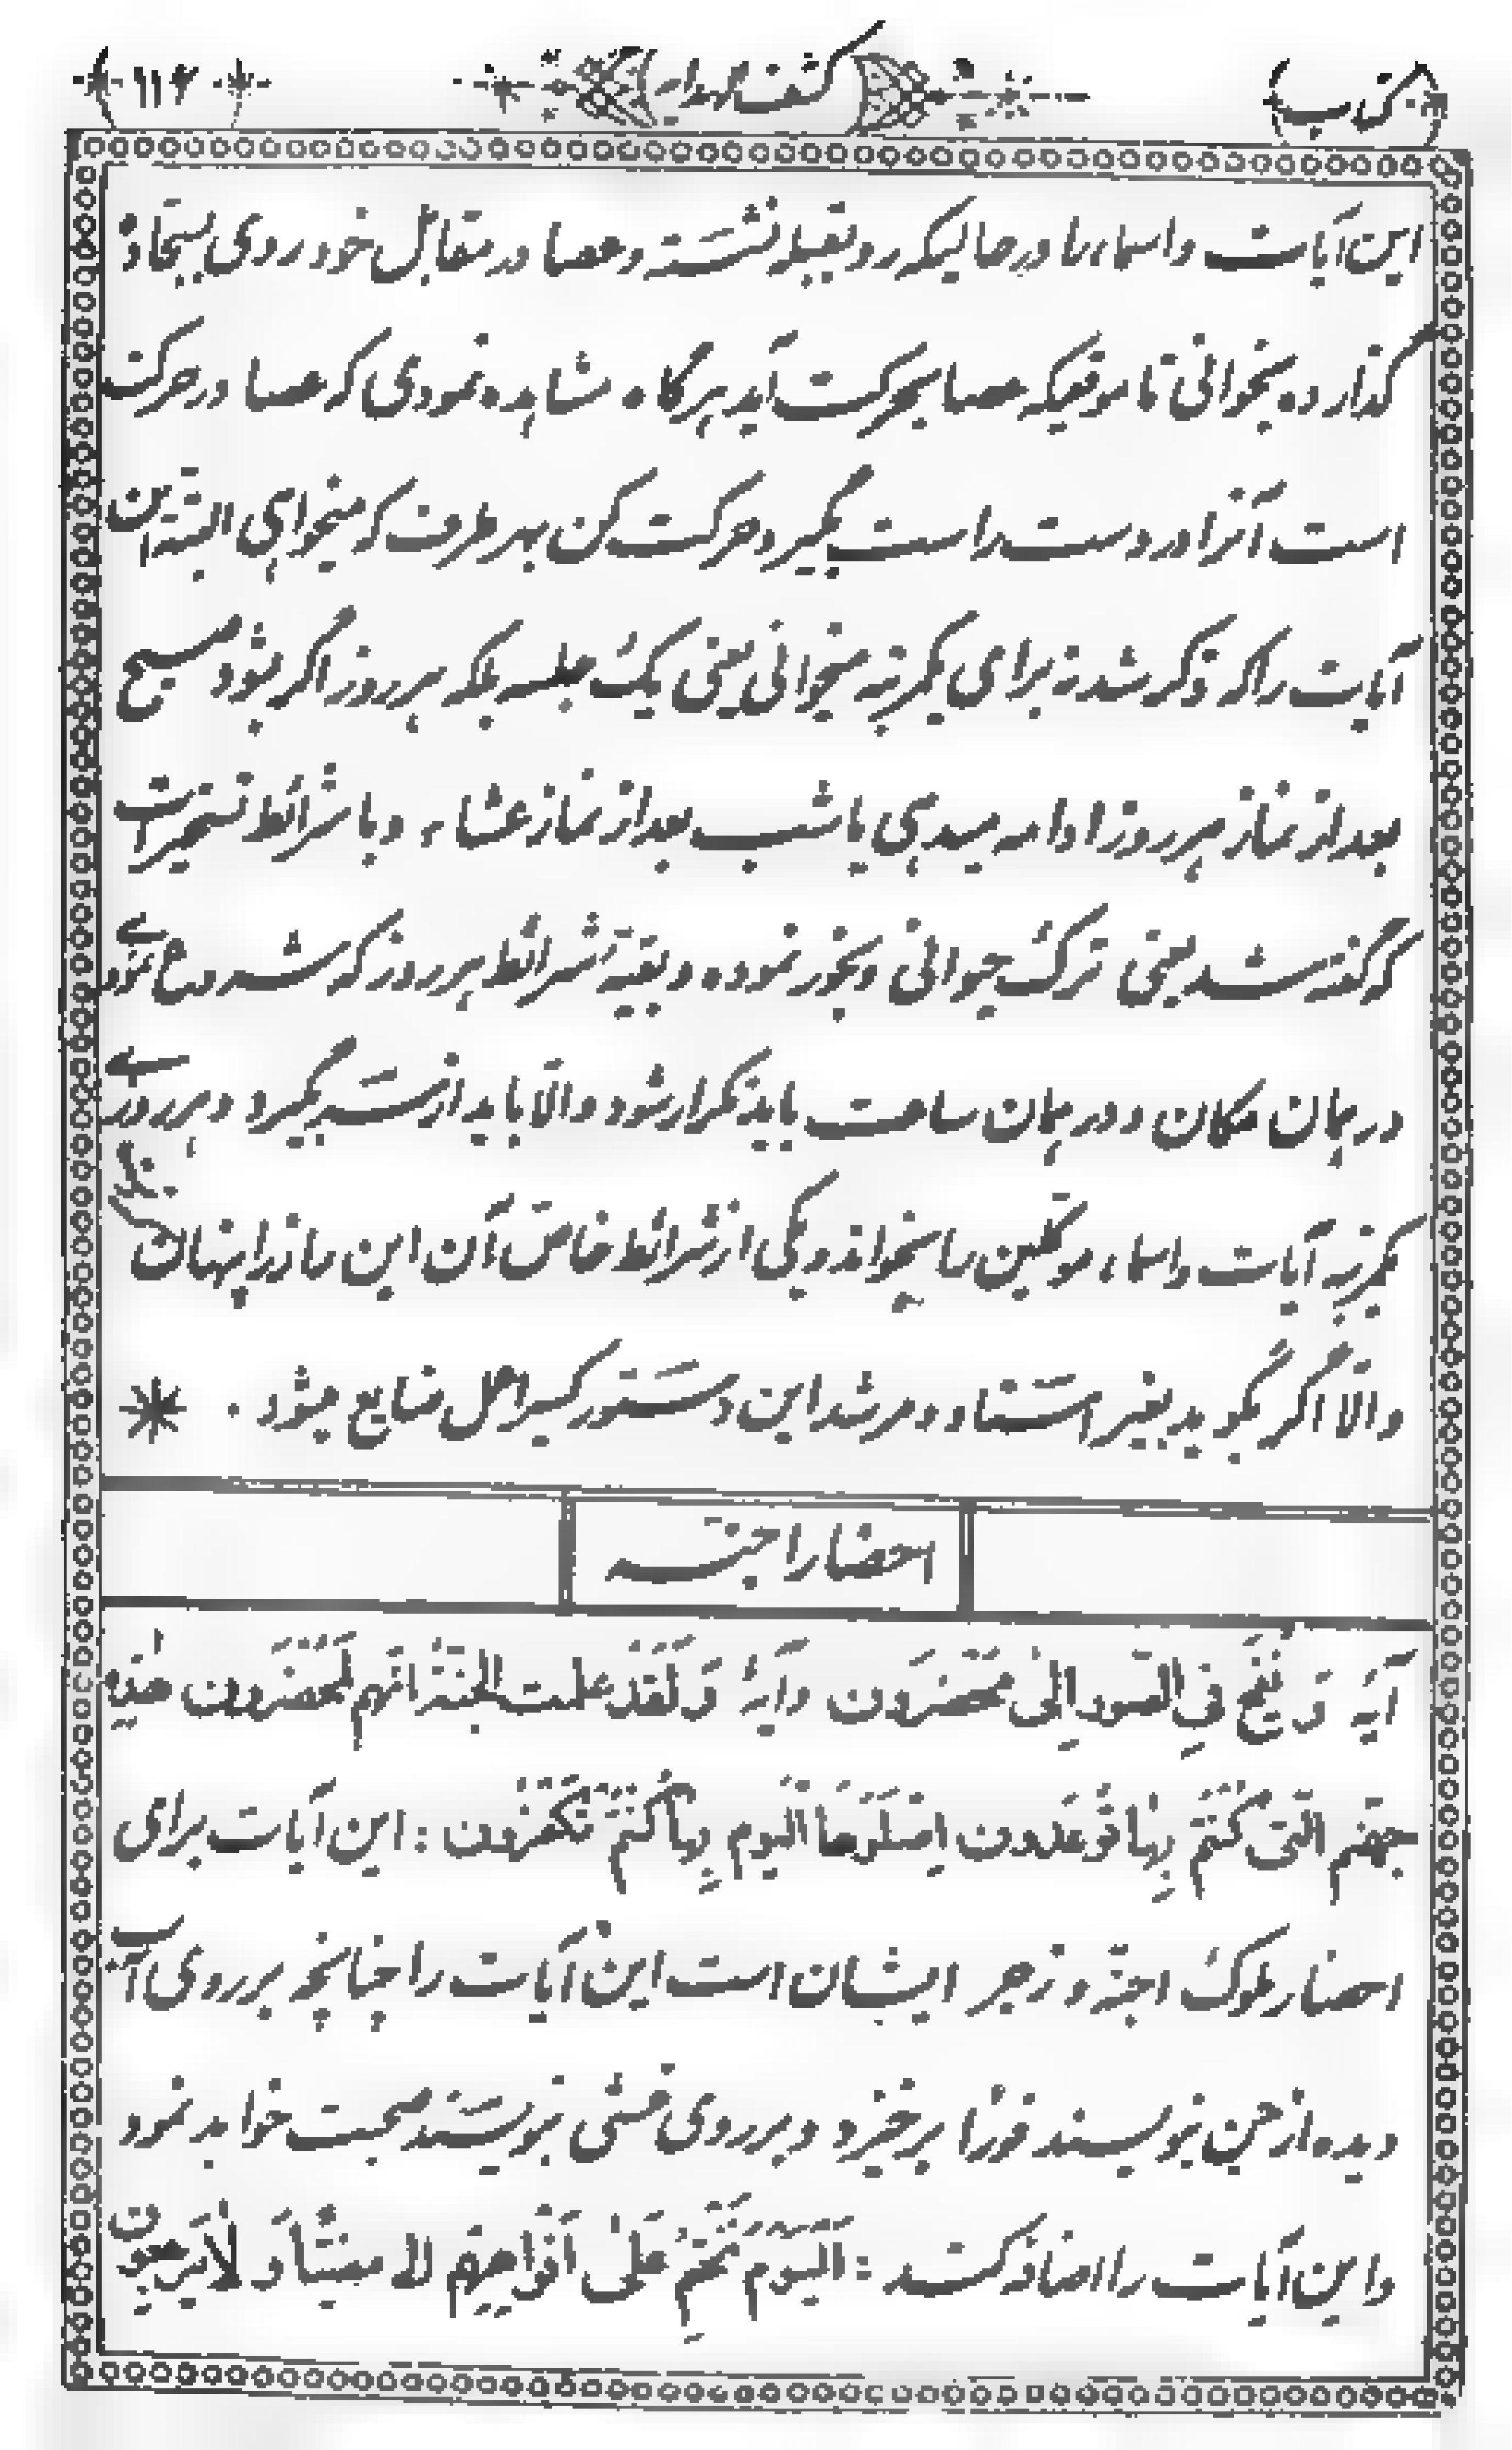 کتاب کشف الهدایه ۱۱۶
این آیات و اسماء را در حالیکه رو بقبله نشسته و عصا در مقابل خود روی سجاده
گذارده بخوانی تا موقعیکه عصا بحرکت آید هرگاه مشاهده نمودی که عصا در حرکت
است آنرا در دست راست بگیر و حرکت کن بهر طرف که میخواهی البته این
آیات را که ذکر شد نه برای یکمرتبه میخوانی یعنی یک جلسه بلکه هر روز اگر بشود صبح
بعد از نماز هر روز ادامه میدهی یا شب بعد از نماز عشاء و با شرائط تسخیرات
که گذشت یعنی ترک حیوانی و بخور نموده و بقیه شرائط هر روز که شروع نمود
در همان مکان و در همان ساعت باید تکرار شود والّا باید از سر بگیرد و هر روزی
یکمرتبه آیات و اسماء موکلین را بخواند و یکی از شرائط خاصّ آن این راز را پنهان
والّا اگر بگوید بغیر استاد و مرشد این دستور کسیر احل ضایع میشود .
احضار اجنه
آیه وَ نُفِخَ فِی الصّور الی مُحضَرون و آیه وَ لَقَد علمت الجنّة انّهم لَمُحضَرون هٰذِهِ
جهنّم الّتی کُنتُم بِها تُوعَدون اِصلَوهَا الیوم بِما کُنتُم تَکفُرون : این آیات برای
احضار ملوک اجنّه و زجر ایشان است این آیات را چنانچه بر روی آب
دیده از جن نویسند فوراً برخیزد و بر روی خشتی نویسند صحبت خواهد نمود
و این آیات را اضافه کند : اَلیَومَ نَختِمُ عَلیٰ اَفواهِهِم الی مضیّاً وَ لا یَرجِعون